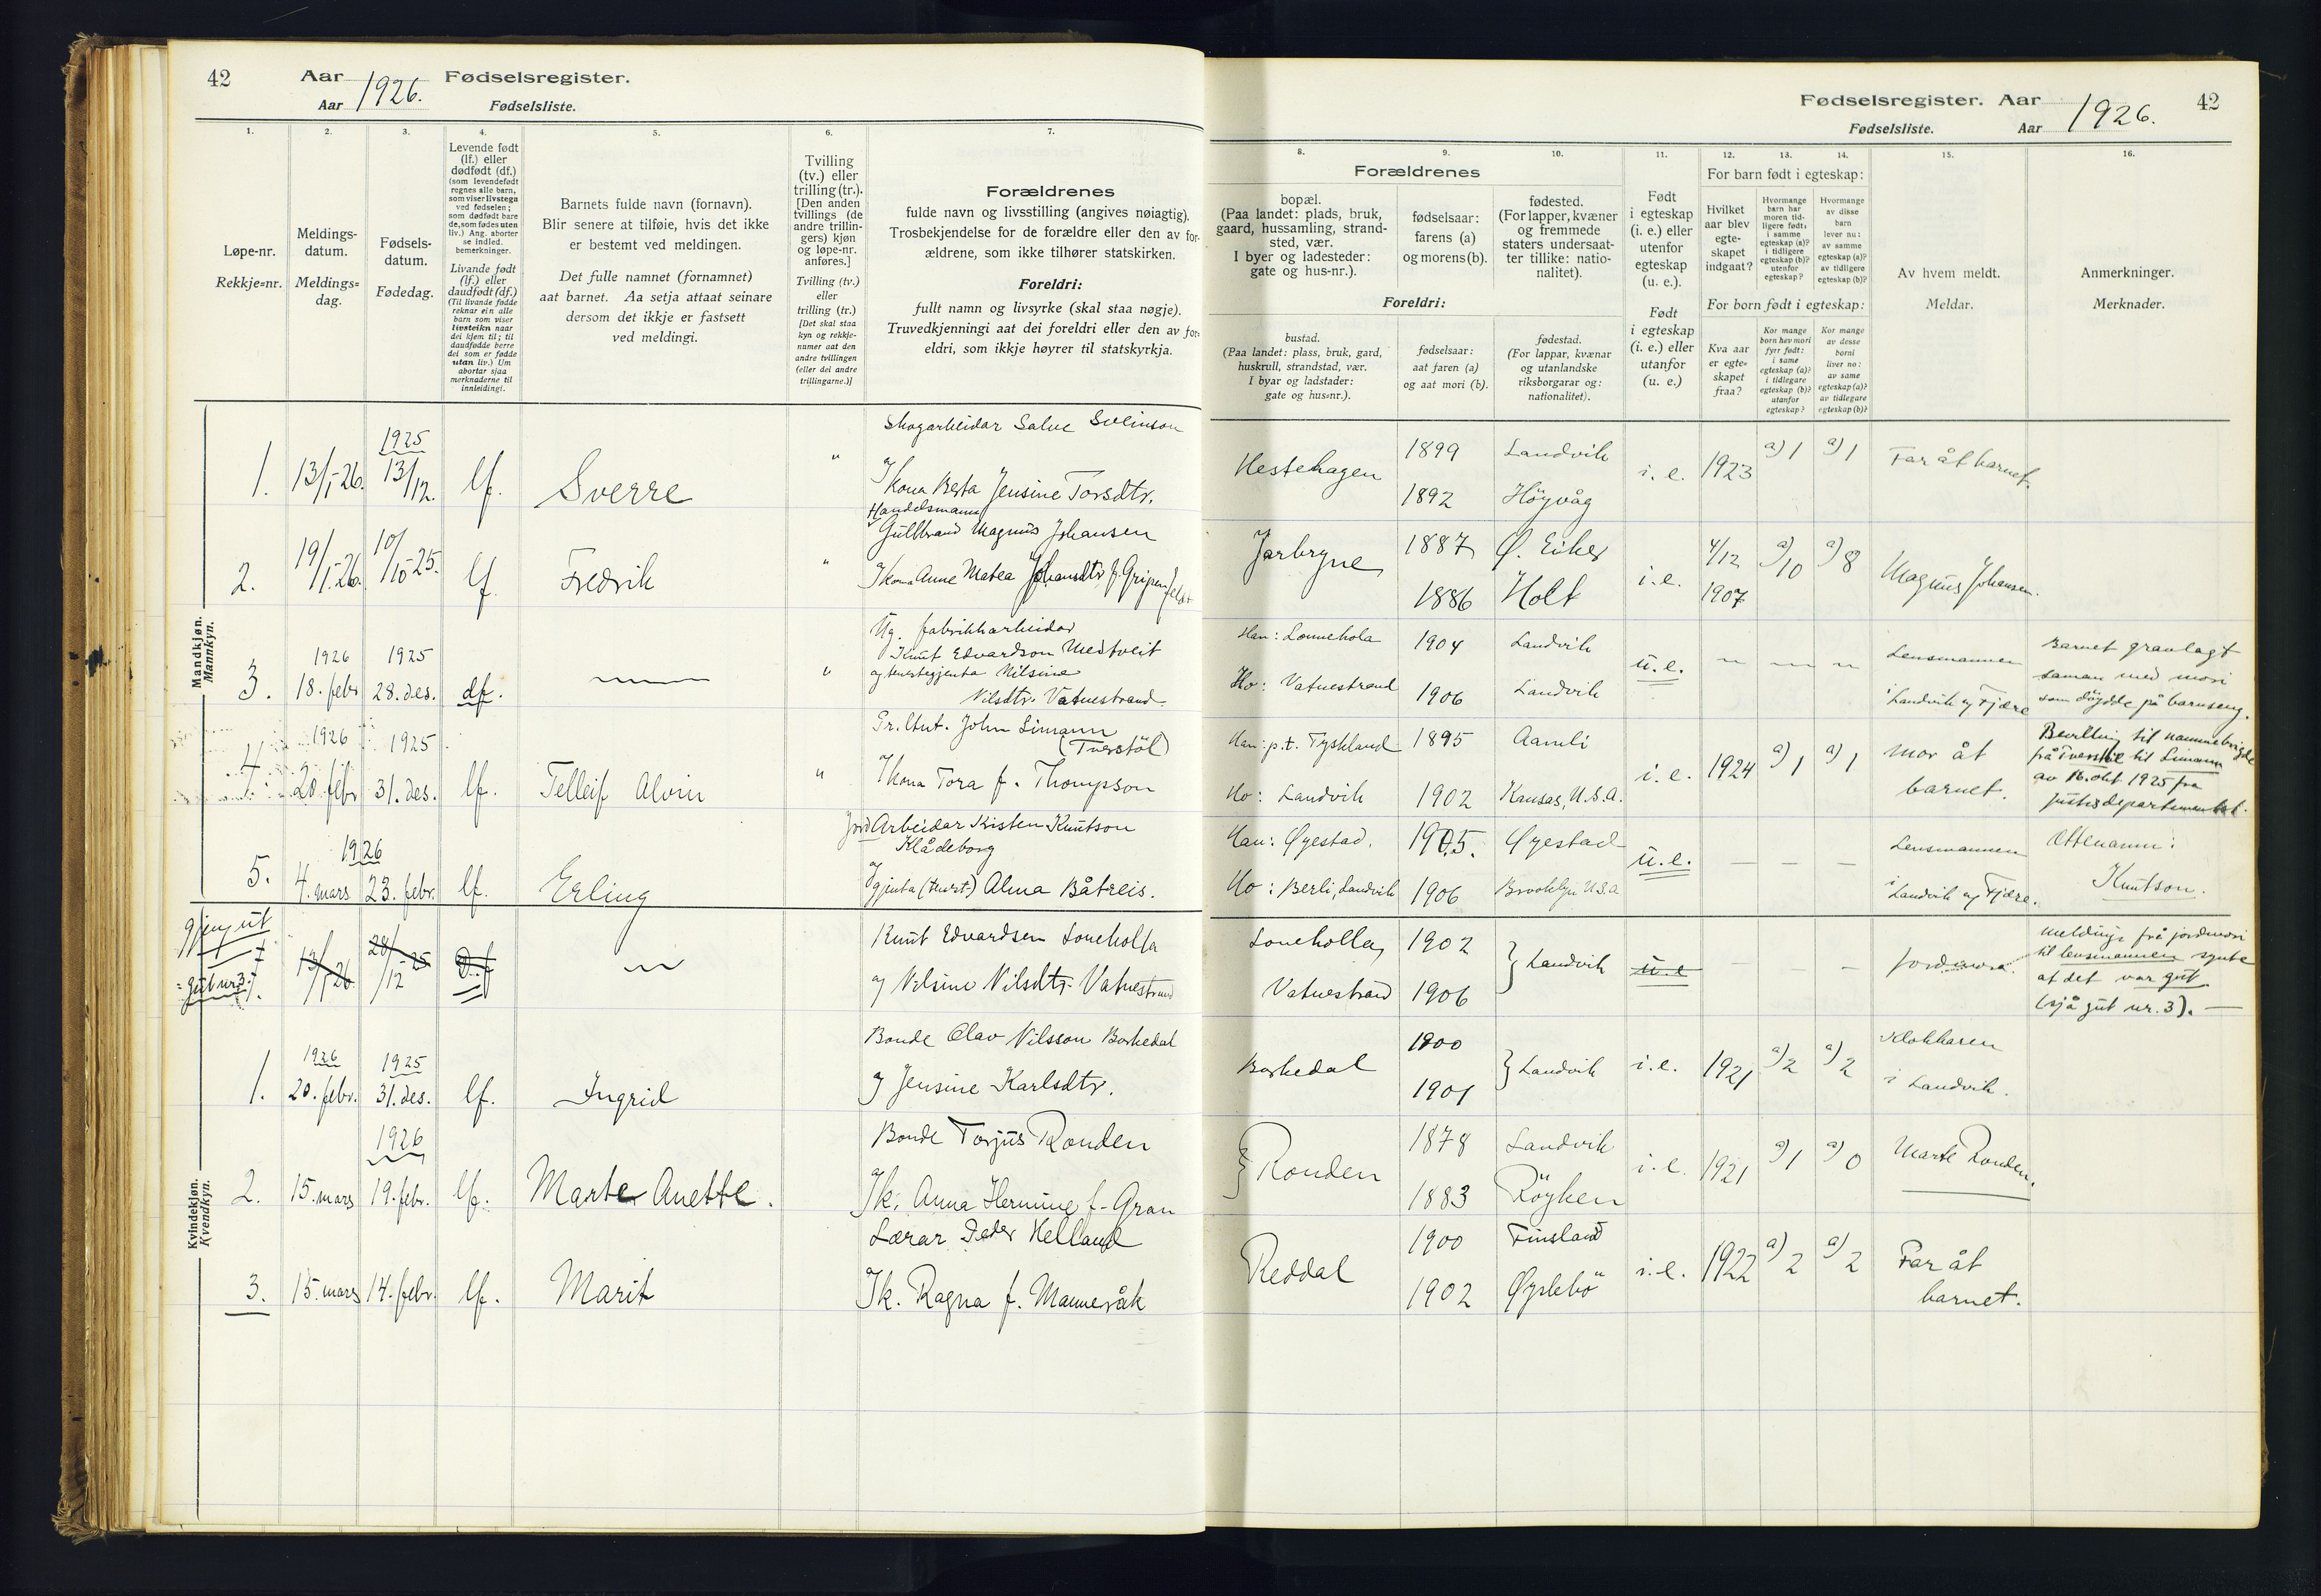 42
Aar 1926. Fødselsregister.
Aar
Fødselsliste.
1.
2.
3.
4.
5.
6.
7.
Løpe-nr.
Rekkje=nr.
Meldings-
datum.
Meldings=
dag.
Fødsels-
datum.
Fødedag.
Levende født
(lf.) eller
dødfødt (df.)
(som levendefødt
regnes alle barn,
som viser livstegn
ved fødselen;
som dødfødt bare
de, som fødes uten
liv.) Ang. aborter
se indled.
bemerkninger.
Livande født
(lf.) eller
daudfødt (df.)
(Til livande fødde
reknar ein alle
barn som viser
livsteikn naar
dei kjem til; til
daudfødde berre
dei som er fødde
utan liv.) Um
abortar sjaa
merknaderne til
innleidingi.
Barnets fulde navn (fornavn).
Blir senere at tilføie, hvis det ikke
er bestemt ved meldingen.
Det fulle namnet (fornamnet)
aat barnet. Aa setja attaat seinare
dersom det ikkje er fastsett
ved meldingi.
Tvilling
(tv.) eller
trilling (tr.).
[Den anden
tvillings (de
andre trillin-
gers) kjøn
og løpe-nr.
anføres.]
Tvilling (tv.)
eller
trilling (tr.)
[Det skal staa
kyn og rekkje-
numer aat den
andre tvillingen
(eller dei andre
trillingarne.)]
Forældrenes
fulde navn og livsstilling (angives nøiagtig).
Trosbekjendelse for de forældre eller den av for-
ældrene, som ikke tilhører statskirken.
Foreldri:
fullt namn og livsyrke (skal staa nøgje).
Truvedkjenningi aat dei foreldri eller den av for-
eldri, som ikkje høyrer til statskyrkja.
Mandkjøn.
Mannkyn.
1925
1. 13/1-26. 13/12. lf. Sverre "
Skogarbeidar Salve Sveinson
og kona Berta Jensine Torsdtr.
2. 19/1-26. 10/10-25. lf. Fredrik "
Handelsmann
Gullbrand Magnus Johansen
og kona Anne Matea Johansdtr f. Gripenfeldt
1926 1925
3. 18. febr 28. des. df. "
Ug. fabrikkarbeidar
Knut Edvardson Mestveit
og tenestegjenta Nilsine
Nilsdtr. Vatnestrand.
1926 1925
4. 20 febr 31. des. lf. Telleif Alvin "
Pr.ltnt. John Simann
(Tverstöl)
og kona Tora f. Thompson
1926
5. 4. mars 23. febr. lf. Erling
Jord Arbeidar Kisten Knutson
Klådeborg
og gjenta (tenest.) Alma Båtreis.
Kvindekjøn.
Kvendkyn.
gjeng ut
= gut nr. 3. 13/1-26 28/12-25 D.f
Knut Edvardsen Loneholla
og Nilsine Nilsdtr. Vatnestrand
1926 1925
1. 20. febr. 31. des. lf. Ingrid
Bonde Olav Nilsson Barkedal
og Jensine Karlsdtr.
1926
2. 15. mars 19. febr. lf. Marte Anette.
Bonde Torjus Ronden
og k. Anna Hermine f. Gran
3. 15. mars 14. febr. lf. Marit
Lærar Peder Helland
og k. Ragna f. Mannevåk
Fødselsregister. Aar 1926. 42
Fødselsliste. Aar
8.
9.
10.
11.
12.
13.
14.
15.
16.
Forældrenes
bopæl.
(Paa landet: plads, bruk,
gaard, hussamling, strand-
sted, vær.
I byer og ladesteder:
gate og hus-nr.).
fødselsaar:
farens (a)
og morens (b).
fødested.
(For lapper, kvæner
og fremmede
staters undersaat-
ter tillike: natio-
nalitet).
Foreldri:
bustad.
(Paa landet: plass, bruk, gard,
huskrull, strandstad, vær.
I byar og ladstader:
gate og hus=nr.).
fødselsaar:
aat faren (a)
og aat mori (b).
fødestad.
(For lappar, kvænar
og utanlandske
riksborgarar og:
nationalitet).
Født
i egteskap
(i. e.) eller
utenfor
egteskap
(u. e.).
Født
i egteskap
(i. e.) eller
utanfor
(u. e.)
For barn født i egteskap:
Hvilket
aar blev
egte-
skapet
indgaat?
Hvormange
barn har
moren tid-
ligere født:
i samme
egteskap (a)?
i tidligere
egteskap (b)?
utenfor
egteskap?
Hvormange
av disse
barn
lever nu:
av samme
egteskap (a)?
av tidligere
egteskap (b)?
For born født i egteskap:
Kva aar
er egte=
skapet
fraa?
Kor mange
born hev mori
fyrr født:
i same
egteskap (a)?
i tidlegare
egteskap (b)?
utanfor
egteskap?
Kor mange
av desse
borni
liver no:
av same
egteskap (a)?
av tidlegare
egteskap (b)?
Av hvem meldt.
Meldar.
Anmerkninger.
Merknader.
Hestehagen 1899 Landvik i. e. 1923 a) 1 a) 1 Far åt barnet.
1892 Höyvåg
Jarbryne 1887 Ø. Eiker i. e. 4/12 1907 a) 10 a) 8 Magnus Johansen.
1886 Holt
Han: Lonnehola 1904 Landvik u. e. Lensmannen
Ho: Vatnestrand 1906 Landvik i Landvik og Fjære
Barnet gravlagt
saman med mori
som døydde på barnseng.
Han: p.t. Tyskland 1895 Aamli i. e. 1924 a) 1 a) 1 mor åt
Ho: Landvik 1902 Kansas, U.S.A. barnet.
Bevilling til namnebrigde
frå Tverstöl til Simann
av 16. okt 1925 fra
justisdepartementet.
Han: Øyestad. 1905. Øyestad u. e. — — — Lensmannen
Ho: Berli, Landvik 1906 Brooklyn U.S.A. i Landvik og Fjære.
Ættenamn:
Knutson.
Loneholla, 1902 } Landvik u. e — — — Jordmora.
Vatnestrand 1906
Meldings frå jordmori
til lensmannen synte
at det var gut
(sjå gut nr. 3). —
Barkedal 1900 } Landvik i. e. 1921 a) 2 a) 2 Klokkaren
1901 i Landvik.
} Ronden 1878 Landvik i. e. 1921 a) 1 a) 0 Marte Ronden.
1883 Röyken
Reddal 1900 Finsland i. e. 1922 a) 2 a) 2 Far åt
1902 Øyslebö barnet.